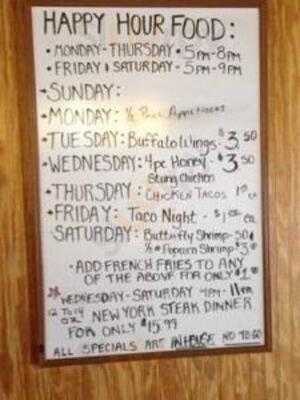 HAPPY HOUR FOOD:
• MONDAY - THURSDAY • 5PM-8PM
• FRIDAY & SATURDAY - 5PM-9PM
SUNDAY:
MONDAY: ½ Price Appetizers
TUESDAY: Buffalo Wings - $3.50
WEDNESDAY: 4pc Honey - $3.50
Stung Chicken
THURSDAY: CHICKEN TACOS
FRIDAY: Taco Night - ea
SATURDAY: Butterfly Shrimp - 50¢
½# Popcorn Shrimp
• ADD FRENCH FRIES TO ANY
OF THE ABOVE FOR ONLY
WEDNESDAY - SATURDAY 4PM - 11PM
12 TO 14 OZ NEW YORK STEAK DINNER
FOR ONLY $15.99
ALL SPECIALS ART IN HOUSE NO TO GO